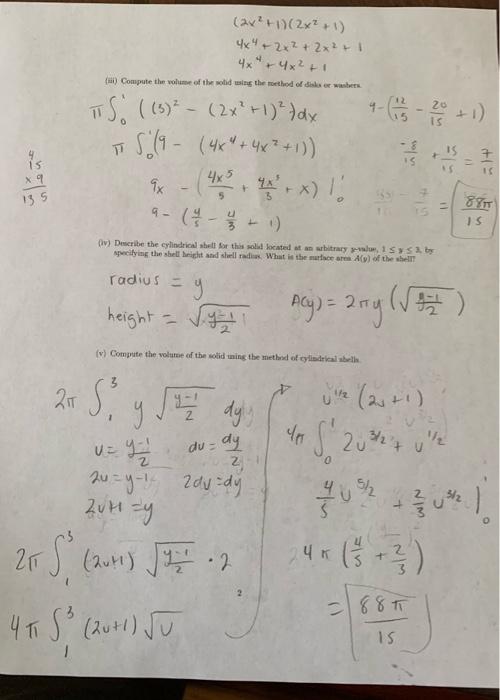 (2x² + 1)(2x² + 1)
4x⁴ + 2x² + 2x² + 1
4x⁴ + 4x² + 1
(iii) Compute the volume of the solid using the method of disks or washers.
π∫₀¹ ((3)² − (2x² + 1)²)dx
π ∫₀¹(9 − (4x⁴ + 4x² + 1))
9x − (4x⁵/5 + 4x³/3 + x) |₀¹
9 − (4/5 − 4/3 + 1)
4
15
x 9
135
9 − (12/15 − 20/15 + 1)
−8/15 + 15/15 = 7/15
7/15 = 88π/15
(iv) Describe the cylindrical shell for this solid located at an arbitrary y-value, 1 ≤ y ≤ 3, by
specifying the shell height and shell radius. What is the surface area A(y) of the shell?
radius = y
height = √(y−1/2)
A(y) = 2πy (√(y−1/2))
(v) Compute the volume of the solid using the method of cylindrical shells.
2π ∫₁³ y √(y−1/2) dy
u = y−1/2 du = dy/2
2u = y−1 2du = dy
2u+1 = y
2π ∫₁³ (2u+1) √(y−1/2) · 2
4π ∫₁³ (2u+1) √u
u^1/2 (2u + 1)
4π ∫₀¹ 2u^3/2 + u^1/2
4/5 u^5/2 + 2/3 u^3/2 |₀¹
4π (4/5 + 2/3)
= 88π/15
2